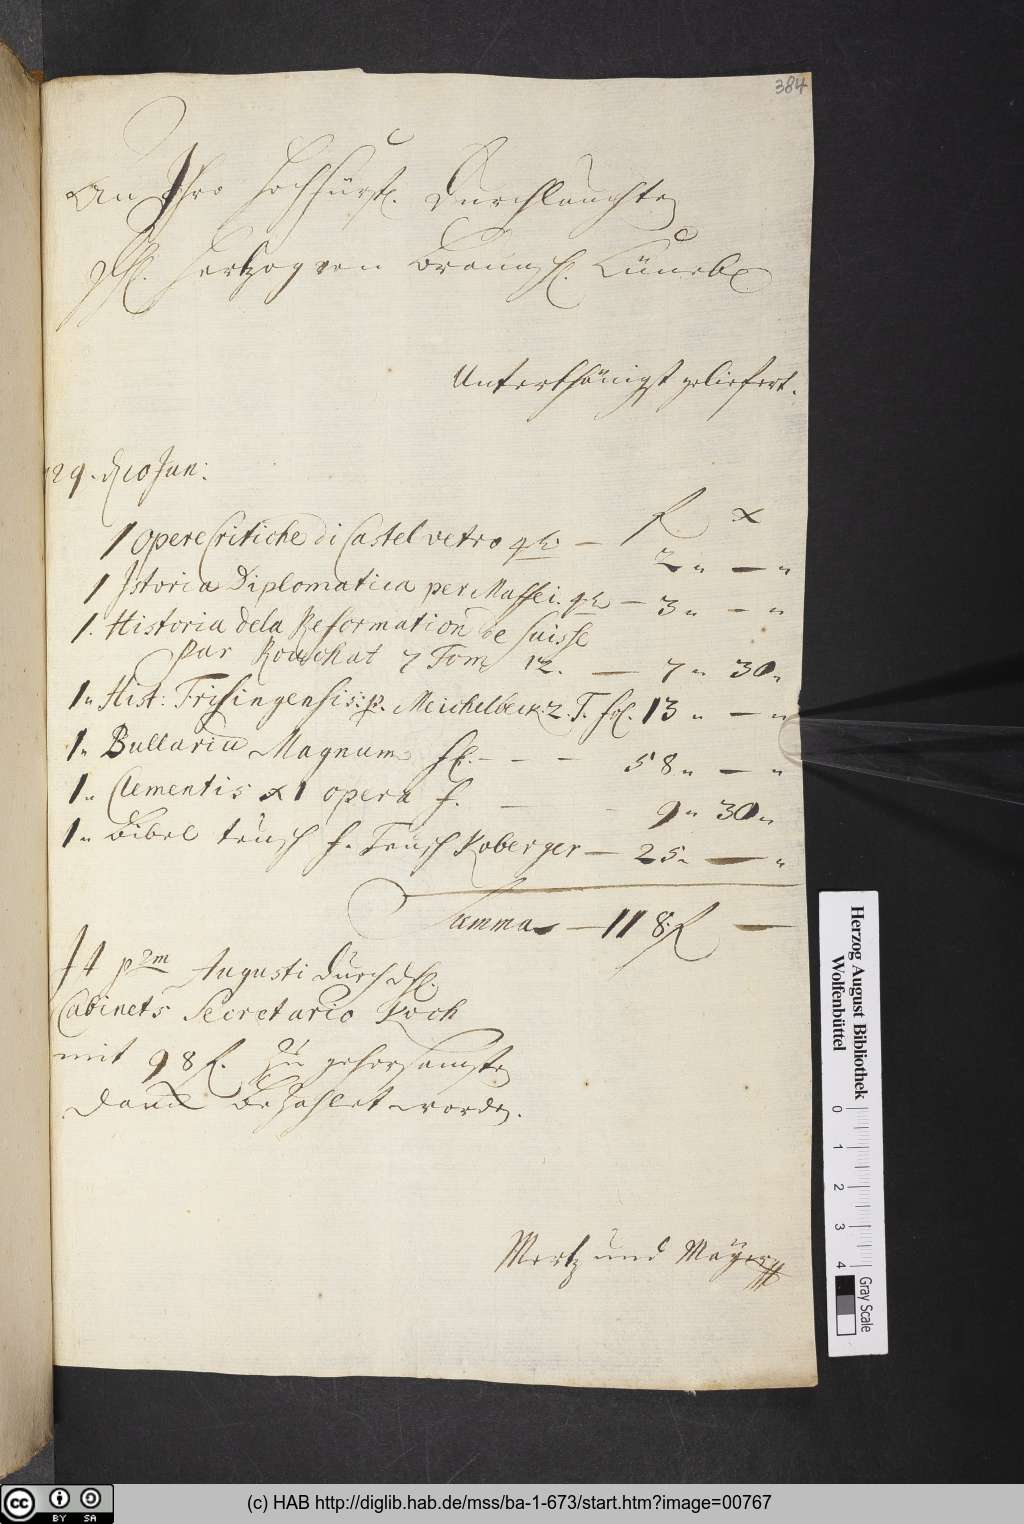 384
An Ihro Hochfürstl. Durchlaucht
Hertzog von Braunschl. Lüneb.
Unterthänigst geliefert.
29. 10 Jun:
f x
1 Opere Critiche di Castelvetro 4to — 2 „ — „
1 Istoria Diplomatica per Maffei. 4to — 3 „ — „
1. Historia dela Reformation de Suisse
par Rouchat 7 Tom 12. — 7 „ 30 „
1 „ Hist: Frisingensis: p. Meichelbeck. 2. T. fol. 13 „ — „
1 „ Bullariu Magnum f. - - - 58 „ — „
1 „ Clementis XI opera f. — 9 „ 30 „
1 „ Bibel teüsch f. Teusch Koberger — 25 „ — „
Summa — 118 f —
Augusti durch
Cabinets Secretario Koch
mit 98 f. zu gehorsamsten
Danck bezahlet worden.
Mertz und Mayer
Herzog August Bibliothek
Wolfenbüttel
0 1 2 3 4
Gray Scale
cc BY SA
(c) HAB http://diglib.hab.de/mss/ba-1-673/start.htm?image=00767